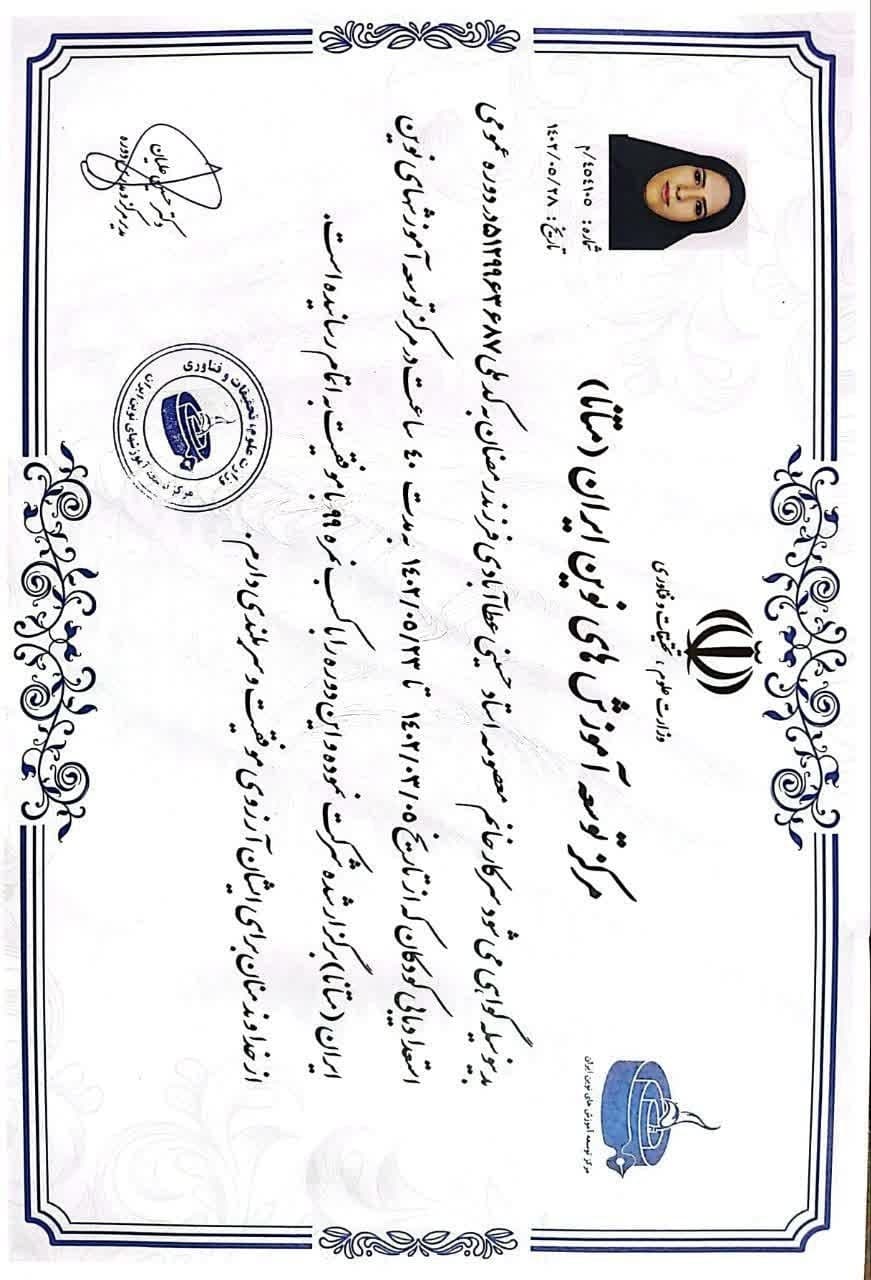 وزارت علوم، تحقیقات و فناوری
مرکز توسعه آموزش های نوین ایران (متانا)
مرکز توسعه آموزش های نوین ایران
شماره: ۴۵۴۱۰۵/م
تاریخ: ۱۴۰۲/۰۵/۲۸
بدینوسیله گواهی می شود سرکار خانم معصومه استاد حسینی عطاآبادی فرزند رمضان به کد ملی ۵۱۲۹۹۶۳۶۸۷ در دوره عمومی
استعدادیابی کودکان که از تاریخ ۱۴۰۲/۰۳/۰۵ تا ۱۴۰۲/۰۵/۲۳ به مدت ۴۰ ساعت در مرکز توسعه آموزشهای نوین
ایران (متانا) برگزار شده شرکت نموده و این دوره را با کسب نمره ۹۹ با موفقیت به اتمام رسانیده است.
از خداوند منان برای ایشان آرزوی موفقیت و سربلندی دارم.
وزارت علوم، تحقیقات و فناوری
مرکز توسعه آموزشهای نوین ایران
دکتر
مدیر مرکز